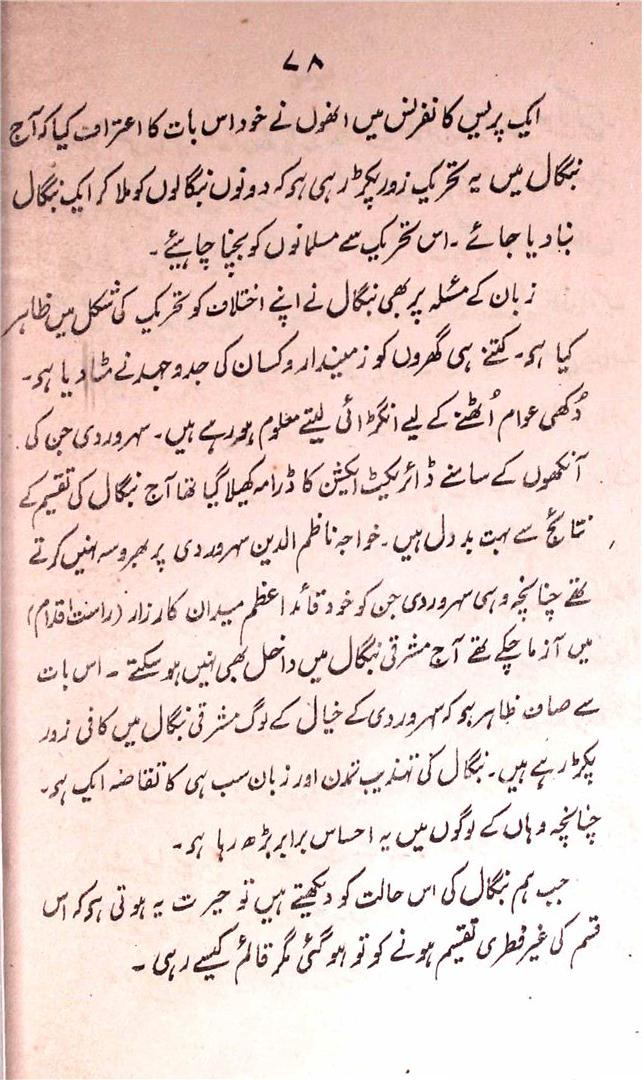 ۷۸
ایک پریس کانفرنس میں انھوں نے خود اس بات کا اعتراف کیا کہ آج
بنگال میں یہ تحریک زور پکڑ رہی ہے کہ دونوں بنگالوں کو ملا کر ایک بنگال
بنا دیا جائے ۔ اس تحریک سے مسلمانوں کو بچنا چاہیئے ۔
زبان کے مسئلہ پر بھی بنگال نے اپنے اختلاف کو تحریک کی شکل میں ظاہر
کیا ہے ۔ کتنے ہی گھروں کو زمیندار و کسان کی جدوجہد نے مٹا دیا ہے ۔
دُکھی عوام اُٹھنے کے لیے انگڑائی لیتے معلوم ہو رہے ہیں ۔ سہروردی جن کی
آنکھوں کے سامنے ڈائریکٹ ایکشن کا ڈرامہ کھیلا گیا تھا آج بنگال کی تقسیم کے
نتائج سے بہت بد دل ہیں ۔ خواجہ ناظم الدین سہروردی پر بھروسہ نہیں کرتے
تھے چنانچہ وہی سہروردی جن کو خود قائد اعظم میدان کارزار (راست اقدام)
میں آزما چکے تھے آج مشرقی بنگال میں داخل بھی نہیں ہو سکتے ۔ اس بات
سے صاف ظاہر ہے کہ سہروردی کے خیال کے لوگ مشرقی بنگال میں کافی زور
پکڑ رہے ہیں ۔ بنگال کی تہذیب تمدن اور زبان سب ہی کا تقاضہ ایک ہے ۔
چنانچہ وہاں کے لوگوں میں یہ احساس برابر بڑھ رہا ہے ۔
جب ہم بنگال کی اس حالت کو دیکھتے ہیں تو حیرت یہ ہوتی ہے کہ اس
قسم کی غیر فطری تقسیم ہونے کو تو ہو گئی مگر قائم کیسے رہی ۔